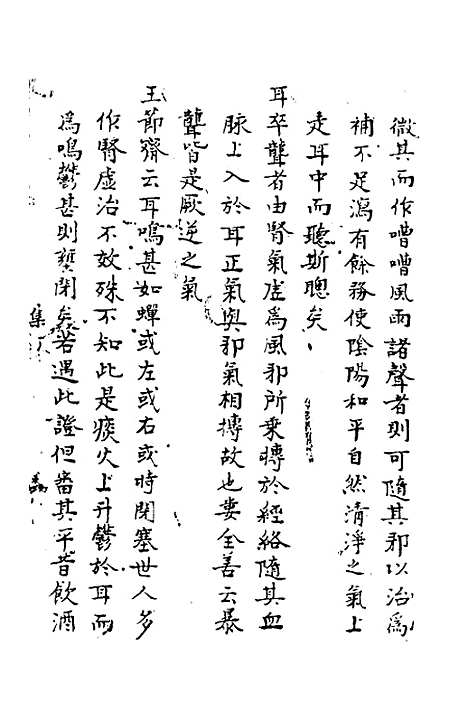 微其而作嘈嘈風雨諸聲者則可隨其邪以治爲
補不足瀉有餘務使陰陽和平自然清淨之氣上
走耳中而聽斯聰矣
耳卒聾者由腎氣虛爲風邪所乘搏於經絡隨其血
脉上入於耳正氣與邪氣相搏故也婁全善云暴
聾皆是厥逆之氣
王節齋云耳鳴甚如蟬或左或右或時閉塞世人多
作腎虛治不效殊不知此是痰火上升鬱於耳而
爲鳴鬱甚則壅閉矣若遇此證但審其平昔飲酒
集